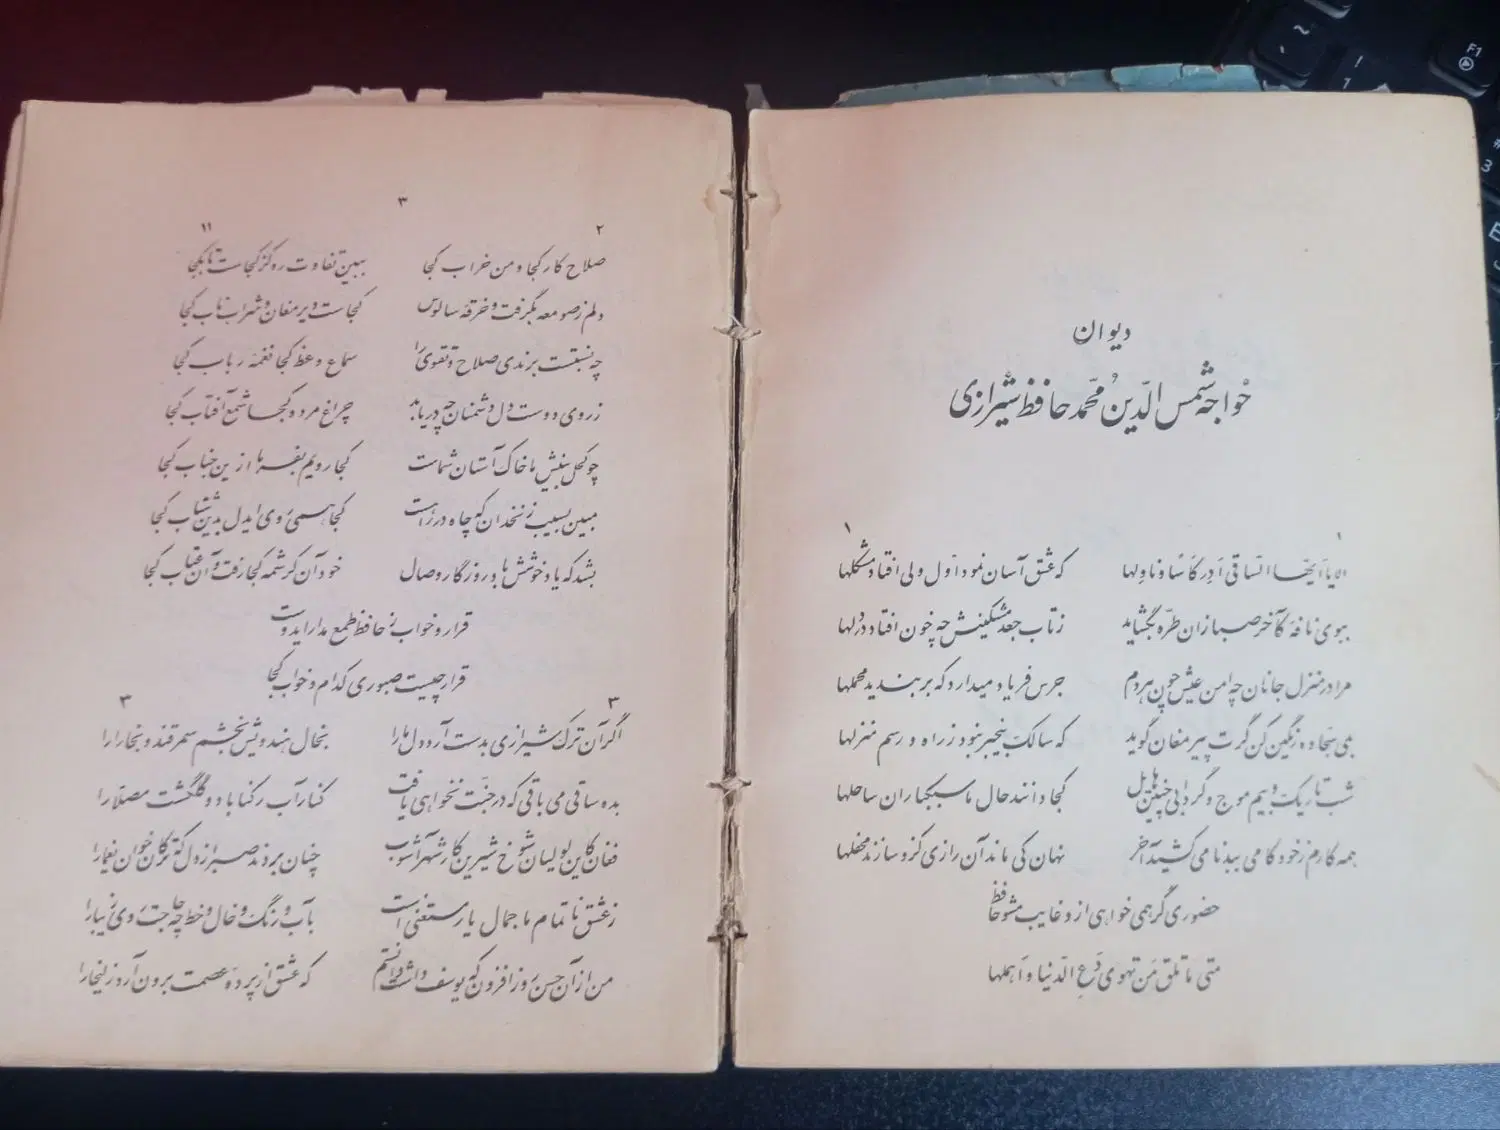 دیوان
خواجه شمس الدّین محمّد حافظ شیرازی
۱ ۱
الا یا اَیّها السّاقی اَدِر کَاْساً و ناوِلها که عشق آسان نمود اوّل ولی افتاد مشکلها
ببوی نافهٔ کآخر صبا زان طرّه بگشاید ز تاب جعد مشکینش چه خون افتاد در دلها
مرا در منزل جانان چه امن عیش چون هر دم جرس فریاد میدارد که بر بندید محملها
بمی سجّاده رنگین کن گرت پیر مغان گوید که سالک بیخبر نبود ز راه و رسم منزلها
شب تاریک و بیم موج و گردابی چنین هایل کجا دانند حال ما سبکباران ساحلها
همه کارم ز خود کامی ببدنامی کشید آخر نهان کی ماند آن رازی کزو سازند محفلها
حضوری گر همی خواهی ازو غایب مشو حافظ
متی ما تلق مَن تهوی دَعِ الدّنیا و اَهملها
۳
۲ ۱۱
صلاح کار کجا و من خراب کجا ببین تفاوت ره کز کجاست تا بکجا
دلم ز صومعه بگرفت و خرقهٔ سالوس کجاست دیر مغان و شراب ناب کجا
چه نسبتست برندی صلاح و تقوی را سماع وعظ کجا نغمهٔ رباب کجا
ز روی دوست دل دشمنان چه دریابد چراغ مرده کجا شمع آفتاب کجا
چو کحل بینش ما خاک آستان شماست کجا رویم بفرما ازین جناب کجا
مبین بسیب زنخدان که چاه در راهست کجا همی روی ای دل بدین شتاب کجا
بشد که یاد خوشش باد روزگار وصال خود آن کرشمه کجا رفت و آن عتاب کجا
قرار و خواب ز حافظ طمع مدار ای دوست
قرار چیست صبوری کدام و خواب کجا
۳ ۳
اگر آن ترک شیرازی بدست آرد دل ما را بخال هندویش بخشم سمرقند و بخارا را
بده ساقی می باقی که در جنّت نخواهی یافت کنار آب رکناباد و گلگشت مصلّا را
فغان کاین لولیان شوخ شیرین کار شهرآشوب چنان بردند صبر از دل که ترکان خوان یغما را
ز عشق ناتمام ما جمال یار مستغنی است بآب و رنگ و خال و خط چه حاجت روی زیبا را
من از آن حسن روز افزون که یوسف داشت دانستم که عشق از پردهٔ عصمت برون آرد زلیخا را